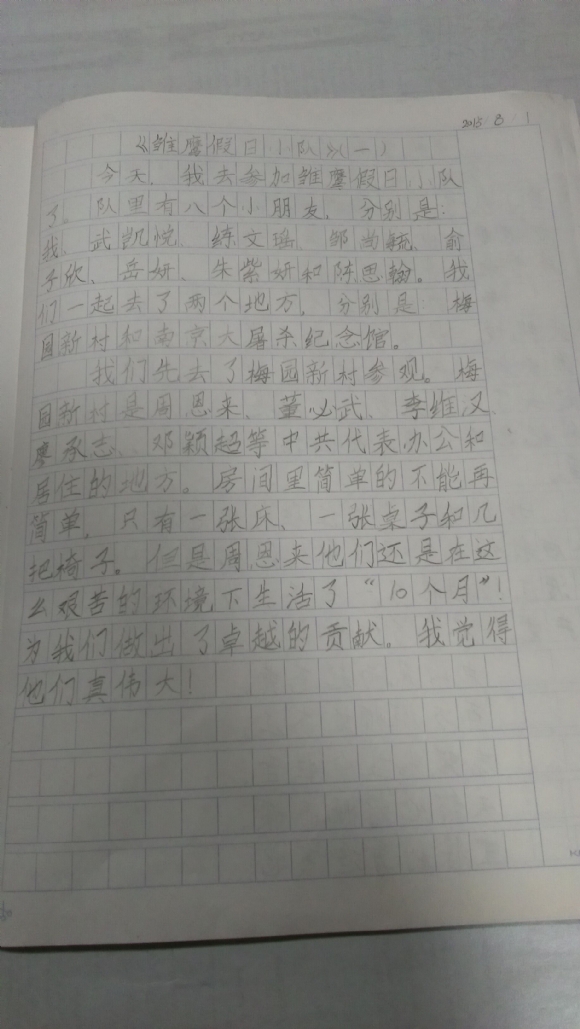 2013 8 1
《雏鹰假日小队》(一)
今天，我去参加雏鹰假日小队
了。队里有八个小朋友，分别是：
我、武凯悦、练文瑶、邹尚毓、俞
子欣、岳妍、朱紫妍和陈思翰。我
们一起去了两个地方，分别是：梅
园新村和南京大屠杀纪念馆。
我们先去了梅园新村参观。梅
园新村是周恩来、董必武、李维汉、
廖承志、邓颖超等中共代表办公和
居住的地方。房间里简单的不能再
简单，只有一张床、一张桌子和几
把椅子。但是周恩来他们还是在这
么艰苦的环境下生活了“10个月”！
为我们做出了卓越的贡献。我觉得
他们真伟大！